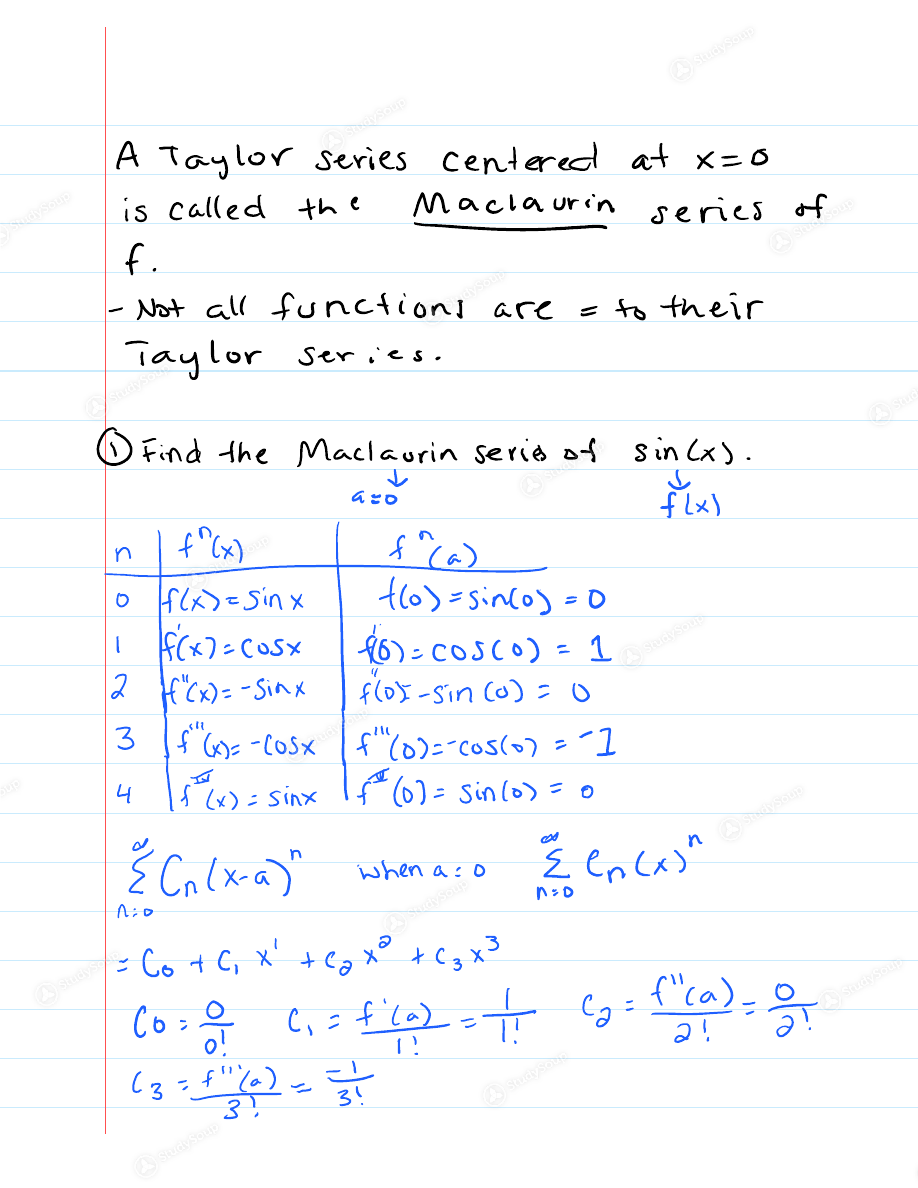 A Taylor series centered at x=0
is called the Maclaurin series of
f.
- Not all functions are = to their
Taylor series.
① Find the Maclaurin series of sin(x).
↓ ↓
a=0 f(x)
n fⁿ(x) fⁿ(a)
0 f(x)=sinx f(0)=sin(0)=0
1 f'(x)=cosx f'(0)=cos(0)=1
2 f''(x)=-sinx f''(0)=-sin(0)=0
3 f'''(x)=-cosx f'''(0)=-cos(0)=-1
4 f^IV(x)=sinx f^IV(0)=sin(0)=0
∞ Σ n=0 Cn(x-a)ⁿ when a=0 ∞ Σ n=0 Cn(x)ⁿ
= C₀ + C₁x¹ + C₂x² + C₃x³
C₀ = 0/0! C₁ = f'(a)/1! = 1/1! C₂ = f''(a)/2! = 0/2!
C₃ = f'''(a)/3! = -1/3!
StudySoup